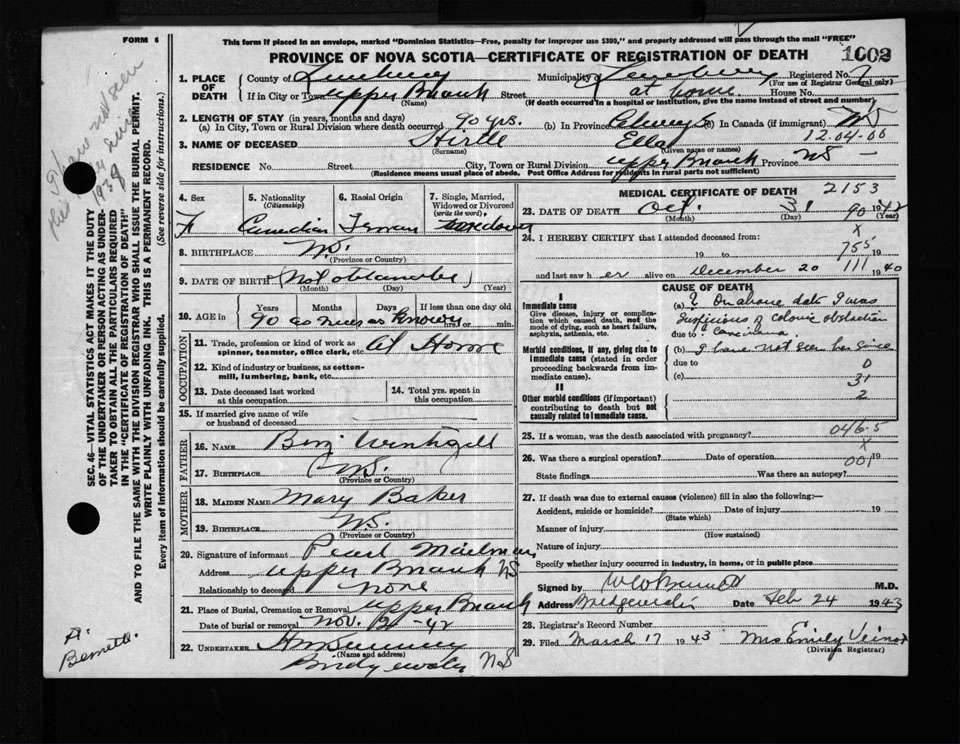 FORM 6
This form if placed in an envelope, marked "Dominion Statistics—Free, penalty for improper use $300," and properly addressed will pass through the mail "FREE"
PROVINCE OF NOVA SCOTIA—CERTIFICATE OF REGISTRATION OF DEATH
1002
1. PLACE OF DEATH
County of Lunenburg Municipality of Lunenburg Registered No.
(For use of Registrar General only)
If in City or Town Upper Branch (Name) Street at home House No.
(If death occurred in a hospital or institution, give the name instead of street and number)
2. LENGTH OF STAY (in years, months and days)
(a) In City, Town or Rural Division where death occurred 90 yrs. (b) In Province Always (c) In Canada (if immigrant) NS
12.04-00
3. NAME OF DECEASED Hirtle Ella
(Surname) (Given name or names)
RESIDENCE No. Street City, Town or Rural Division Upper Branch Province NS —
(Residence means usual place of abode. Post Office Address for residents in rural parts not sufficient)
4. Sex F
5. Nationality (Citizenship) Canadian
6. Racial Origin
7. Single, Married, Widowed or Divorced (write the word)
8. BIRTHPLACE N.S.
(Province or Country)
9. DATE OF BIRTH (Not obtainable)
(Month) (Day) (Year)
10. AGE in Years Months Days If less than one day old
90 as near as known hrs. or min.
OCCUPATION
11. Trade, profession or kind of work as spinner, teamster, office clerk, etc. At Home
12. Kind of industry or business, as cotton-mill, lumbering, bank, etc.
13. Date deceased last worked at this occupation
14. Total yrs. spent in this occupation
15. If married give name of wife or husband of deceased
FATHER
16. NAME Benj
17. BIRTHPLACE N.S.
(Province or Country)
MOTHER
18. MAIDEN NAME Mary Baker
19. BIRTHPLACE N.S.
(Province or Country)
20. Signature of informant Pearl Mailman
Address Upper Branch NS
Relationship to deceased none
21. Place of Burial, Cremation or Removal Upper Branch
Date of burial or removal Nov. 42
22. UNDERTAKER
(Name and address)
Bridgewater NS
MEDICAL CERTIFICATE OF DEATH 2153
23. DATE OF DEATH Oct. 1 1942
(Month) (Day) (Year)
90
24. I HEREBY CERTIFY that I attended deceased from: X
19 to 755 19
and last saw her alive on December 20 111 1940
CAUSE OF DEATH
I
Immediate cause
Give disease, injury or complication which caused death, not the mode of dying, such as heart failure, asphyxia, asthenia, etc.
(a) ? On above date I was
suspicious of colonic obstruction
due to ? Carcinoma
Morbid conditions, if any, giving rise to immediate cause (stated in order proceeding backwards from immediate cause).
(b) I have not seen her since
due to 0
(c) 31
II
Other morbid conditions (if important) contributing to death but not causally related to immediate cause.
2
25. If a woman, was the death associated with pregnancy? 046-5
26. Was there a surgical operation? Date of operation X 19
001
State findings Was there an autopsy?
27. If death was due to external causes (violence) fill in also the following:—
Accident, suicide or homicide? Date of injury 19
(State which)
Manner of injury
(How sustained)
Nature of injury
Specify whether injury occurred in industry, in home, or in public place
Signed by M.D.
Address Bridgewater Date Feb 24 1943
28. Registrar's Record Number
29. Filed March 17 1943 Mrs Emily Veinot
(Division Registrar)
SEC. 46—VITAL STATISTICS ACT MAKES IT THE DUTY OF THE UNDERTAKER OR PERSON ACTING AS UNDERTAKER TO OBTAIN ALL THE PARTICULARS REQUIRED IN THE "CERTIFICATE OF REGISTRATION OF DEATH"
AND TO FILE THE SAME WITH THE DIVISION REGISTRAR WHO SHALL ISSUE THE BURIAL PERMIT. (See reverse side for instructions.)
WRITE PLAINLY WITH UNFADING INK. THIS IS A PERMANENT RECORD.
Every item of information should be carefully supplied.
I have not seen
this since
193